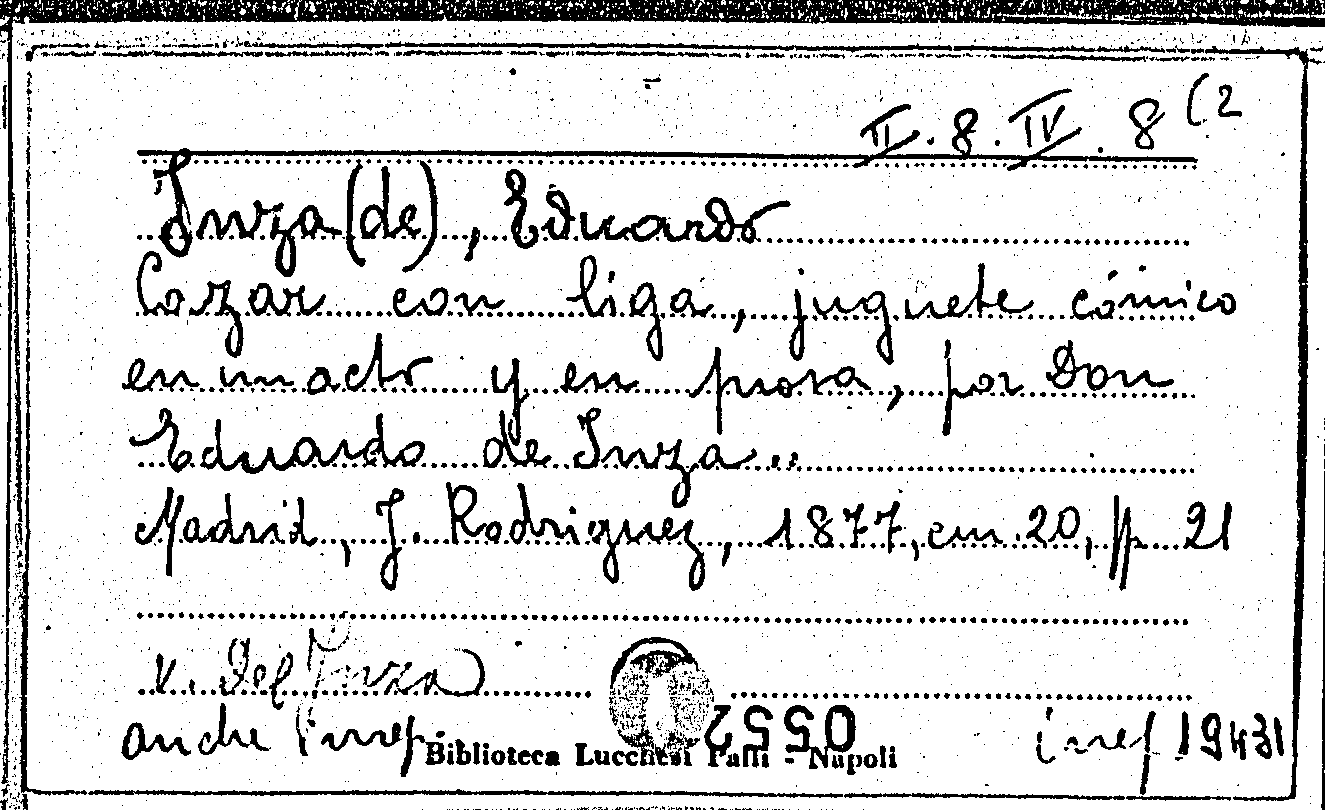 II.8.IV.8(2
Inza (de), Eduardo
Cazar con liga, juguete cómico
en un acto y en prosa, por Don
Eduardo de Inza..
Madrid, J. Rodriguez, 1877, cm. 20, pp. 21
v. De(Inza)
anche
0552
19431
Biblioteca Lucchesi Palli - Napoli